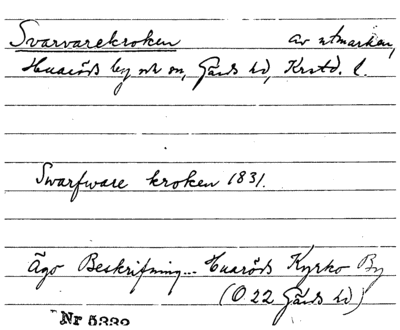 Svarvarekroken av utmarken,
Huaröds by och sn, Gärds hd, Krstd. l.
Swarfware kroken 1831.
Ägo Beskrifning... Huaröds Kyrko By
(O 22 Gärds hd)
Nr 5332